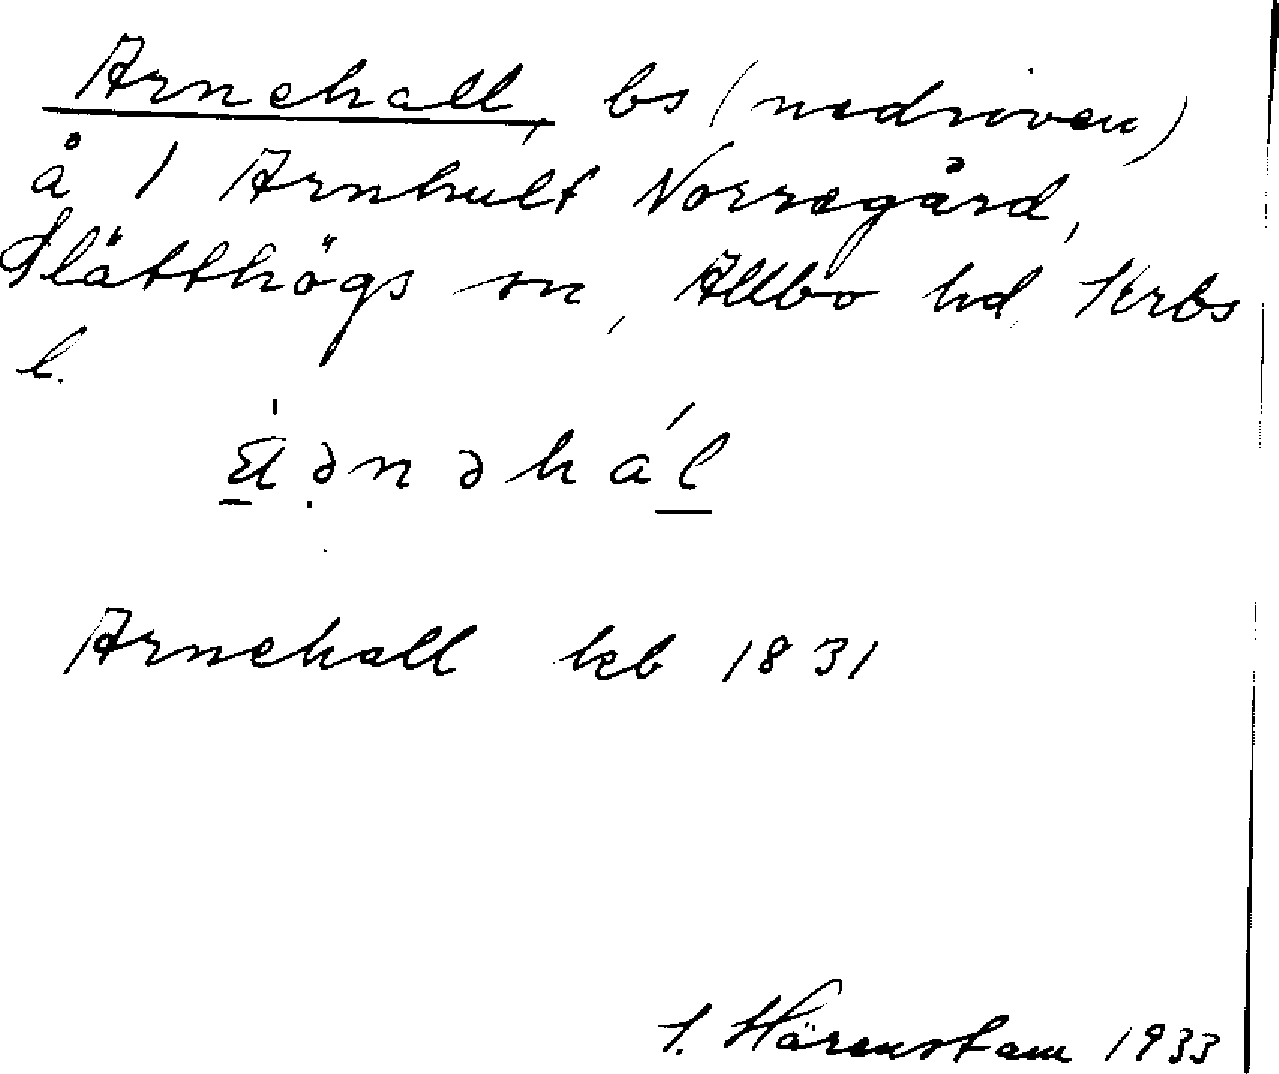 Arnehall, bs (nedriven)
å 1 Arnhult Norregård,
Slätthögs sn, Allbo hd, Krbs
l.
Arnehall hcb 1831
S. Härenstam 1933